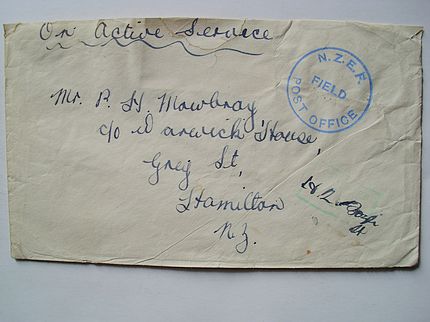 On Active Service
N.Z.E.F.
FIELD
POST OFFICE
Mr. P. H. Mowbray
c/o Warwick House,
Grey St,
Hamilton
N.Z.